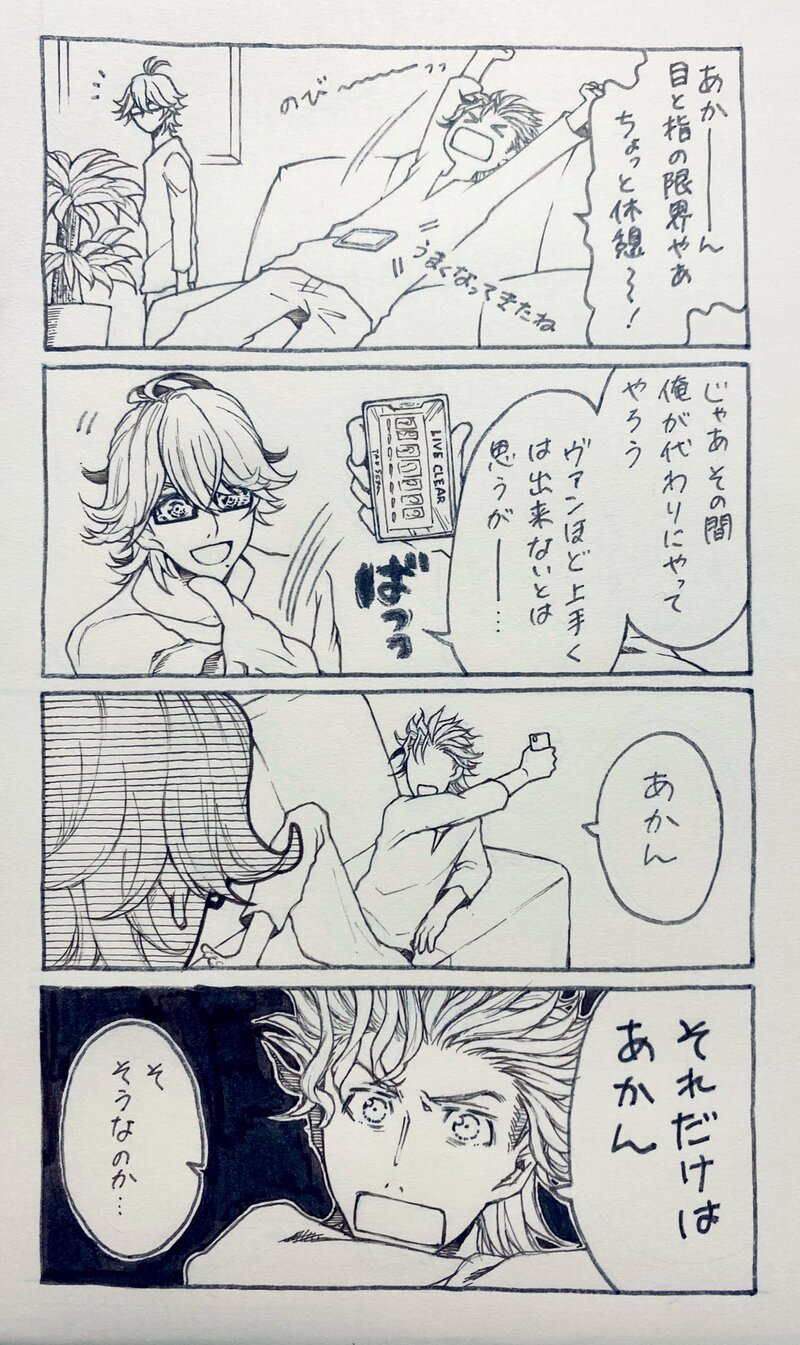 あかーーん
目と指の限界やぁ
ちょっと休憩～～!
のび〜〜〜っっ
うまくなってきたね
じゃあその間
俺が代わりにやって
やろう
ヴァンほど上手く
は出来ないとは
思うがーー…
LIVE CLEAR
ばっっ
あかん
それだけは
あかん
そ
そうなのか…